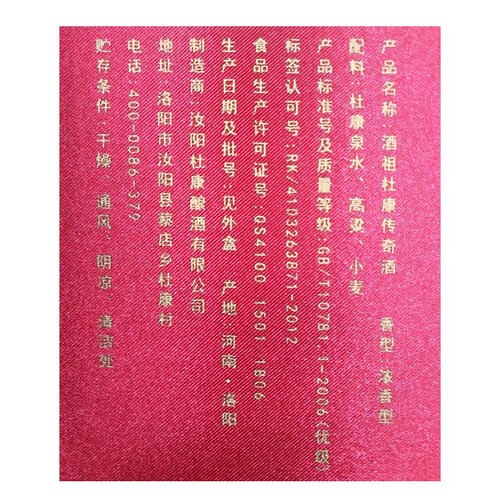 产品名称:酒祖杜康传奇酒 香型:浓香型
配料:杜康泉水、高粱、小麦
产品标准号及质量等级:GB/T10781.1-2006(优级)
标签认可号:RK/41032638​71-2012
食品生产许可证号:QS4100 1501 1806
生产日期及批号:见外盒 产地:河南·洛阳
制造商:汝阳杜康酿酒有限公司
地址:洛阳市汝阳县蔡店乡杜康村
电话:400-0086-379
贮存条件:干燥、通风、阴凉、清洁处